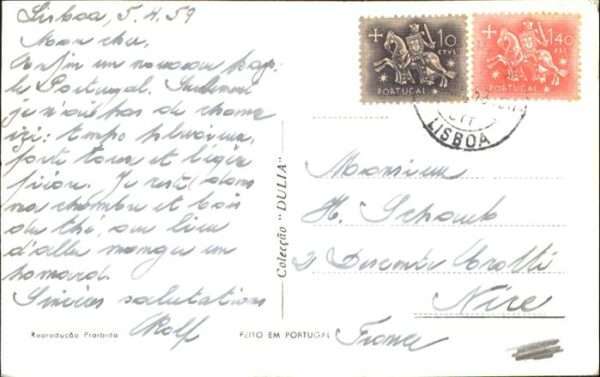 Lisboa, 5.4.59
Mon cher,
Enfin un nouveau
le Portugal.
je n'ai pas de chance
ici: temps pluvieux,
forte toux et légère
fièvre. Je reste dans
ma chambre et bois
du thé, au lieu
d'aller manger un
homard.
Sincères salutations
Rolf
Reprodução Proibida
Colecção "DULIA"
FEITO EM PORTUGAL
10 CTVS
PORTUGAL
1$40
PORTUGAL
LISBOA
Monsieur
H. Schaub
2
Nice
France